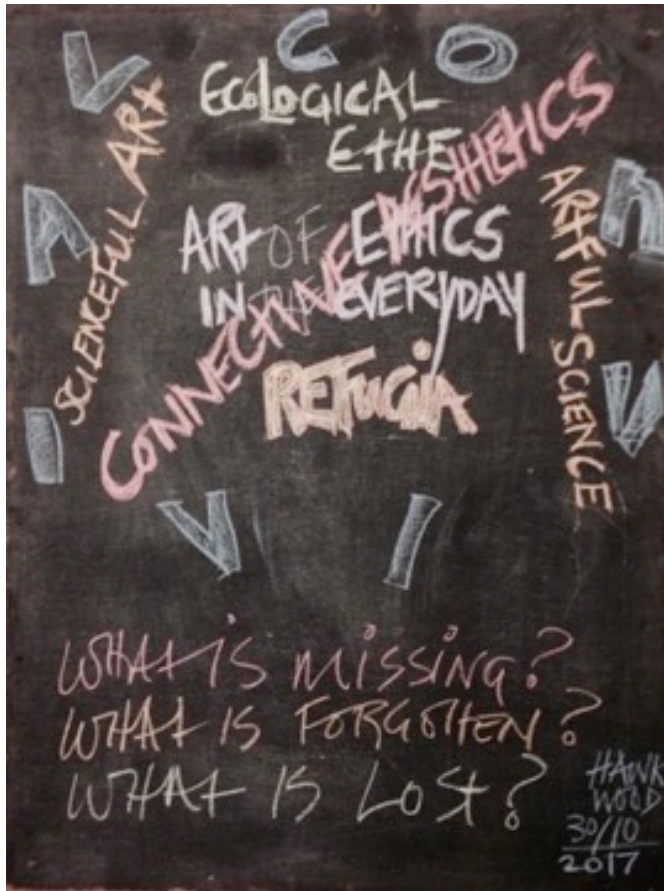 CONVIVIAL
ECOLOGICAL
ETHE
SCIENCEFUL ART
CONNECTIVE AESTHETICS
ARTFUL SCIENCE
ART OF ETHICS
IN THE EVERYDAY
REFUGiA
WHAT iS MiSSiNG?
WHAT IS FORGOTTEN?
WHAT IS LOST?
HAWK
WOOD
30/10
2017